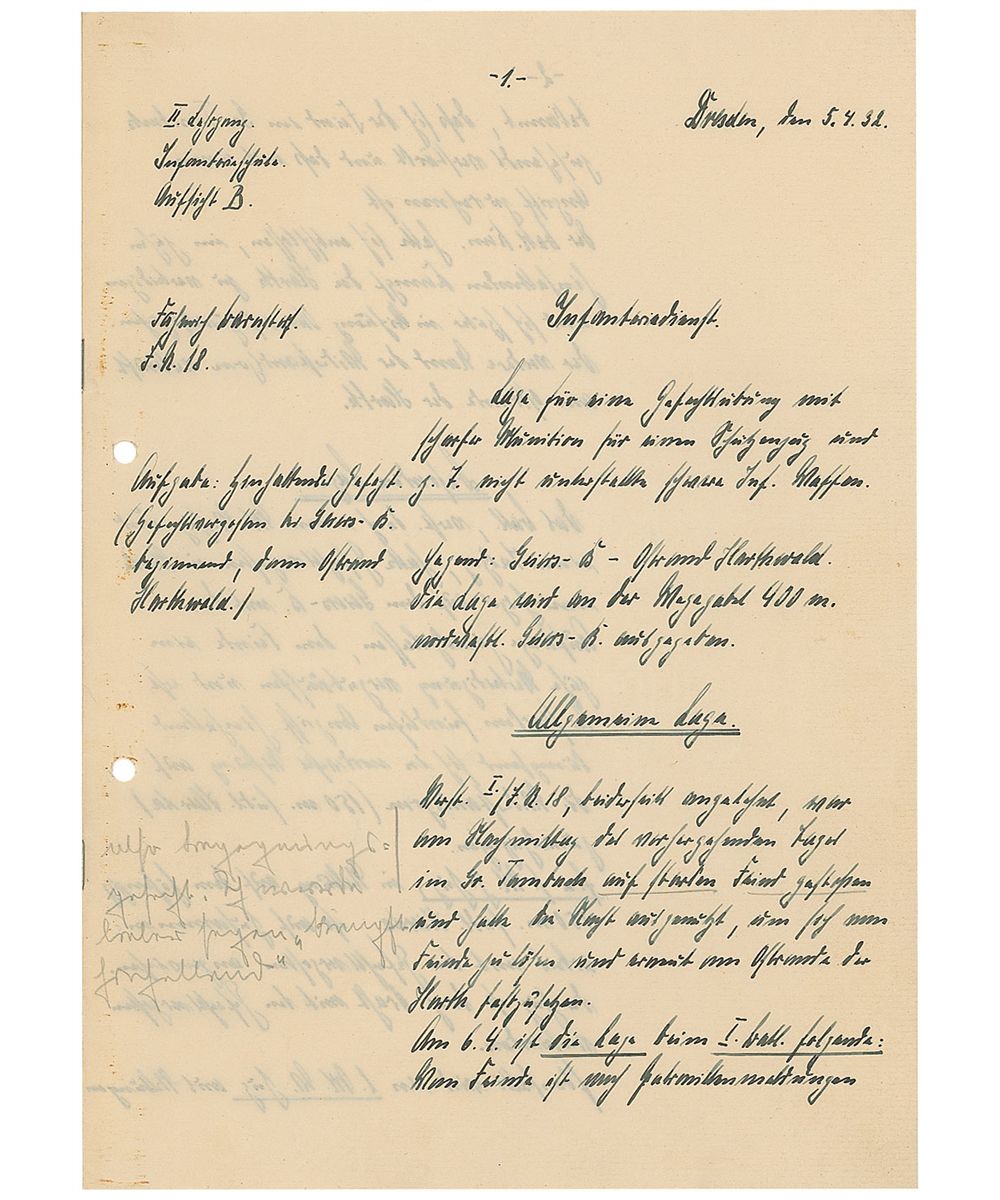 -1.-
II. Lehrgang.
Infanterieschule.
Aufsicht B.
Dresden, den 5.4.32.
Fähnrich
I.R. 18.
Infanteriedienst.
Lage für eine Gefechtsübung mit
scharfer Munition für einen Schützenzug und
z. T. nicht unterstellte schwere Inf. Waffen.
Aufgabe: Hinhaltendes Gefecht.
(Gefechtsvorposten bei Geiers-B.
beginnend, dann Ostrand
Harthwald.)
Gegend: Geiers-B - Ostrand Harthwald.
Die Lage wird an der Wegegabel 400 m.
nordwestl. Geiers-B. ausgegeben.
Allgemeine Lage.
Verst. I./J.R. 18, beiderseits angelehnt, war
am Nachmittag des vorhergehenden Tages
im Gr. Tambach auf starken Feind gestoßen
und hatte die Nacht ausgenutzt, um sich vom
Feinde zu lösen und erneut am Ostrande der
Harth festzusetzen.
Am 6.4. ist die Lage beim I. Batl. folgende:
Vom Feinde ist nach Patrouillenmeldungen
also Begegnungs-
gefecht. Ich würde
lieber sagen „kämpft